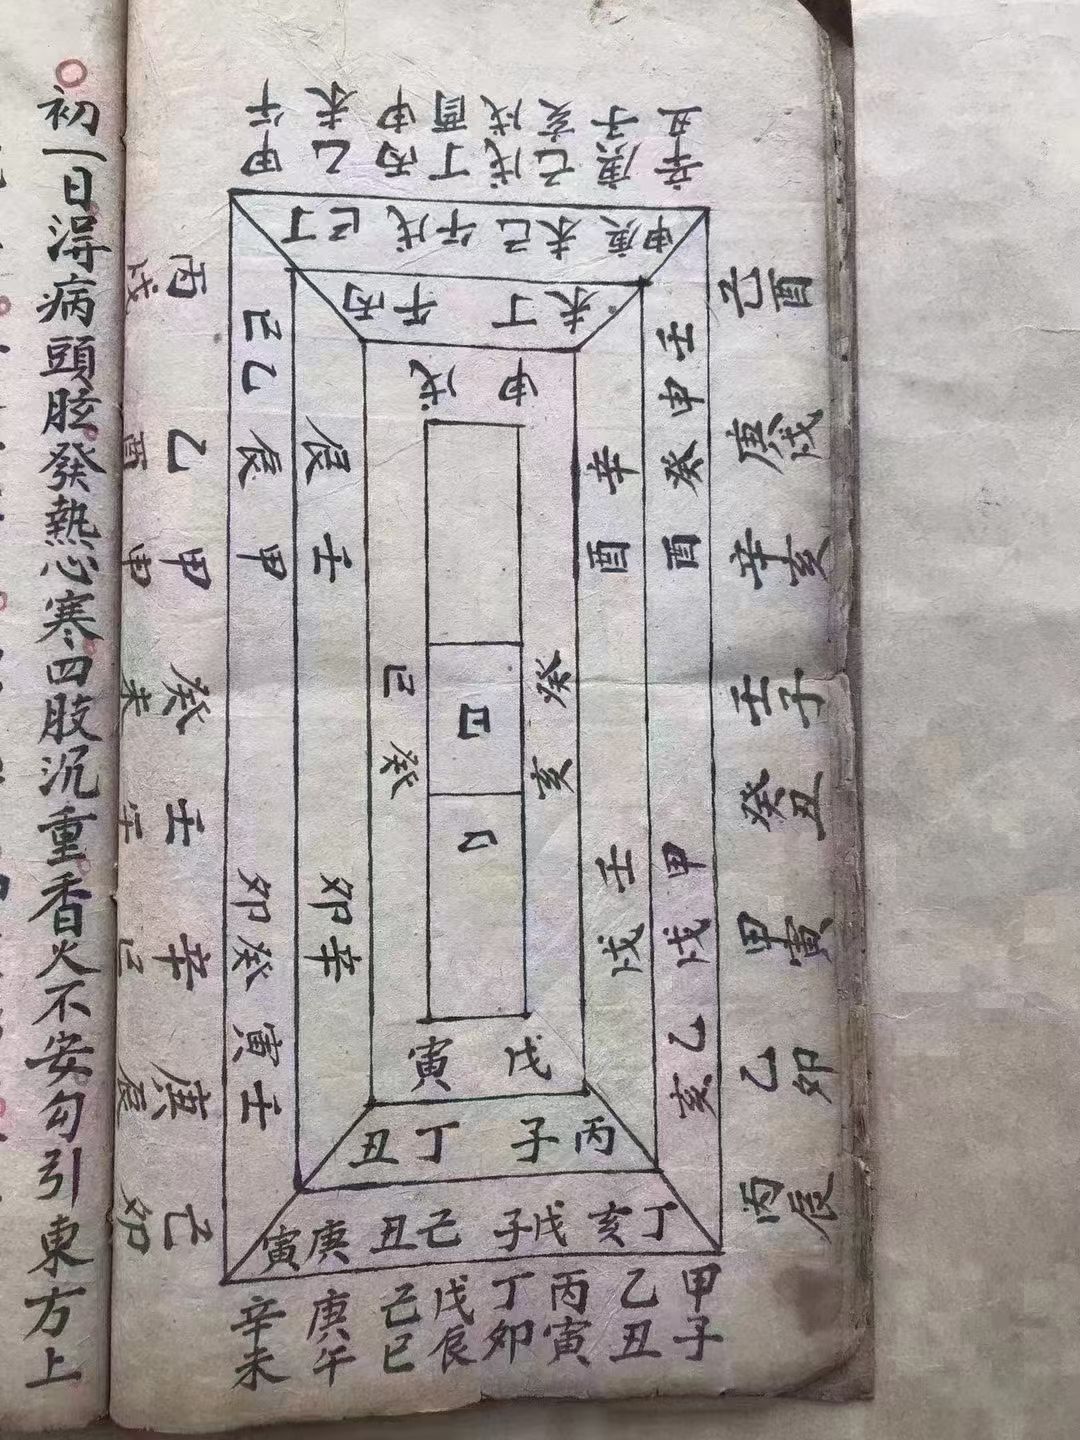 初一日淂病頭眩發熱心寒四肢沉重香火不安勾引東方上
甲午
乙未
丙申
丁酉
戊戌
己亥
庚子
辛丑
己酉
庚戌
辛亥
壬子
癸丑
甲寅
乙卯
丙辰
甲子
乙丑
丙寅
丁卯
戊辰
己巳
庚午
辛未
己卯
庚辰
辛巳
壬午
癸未
甲申
乙酉
丙戌
丁巳
戊午
己未
庚申
壬申
癸酉
甲戌
乙亥
丁亥
戊子
己丑
庚寅
壬寅
癸卯
甲辰
乙巳
丙午
丁未
辛酉
壬戌
丙子
丁丑
辛卯
壬辰
戊申
癸亥
戊寅
癸巳